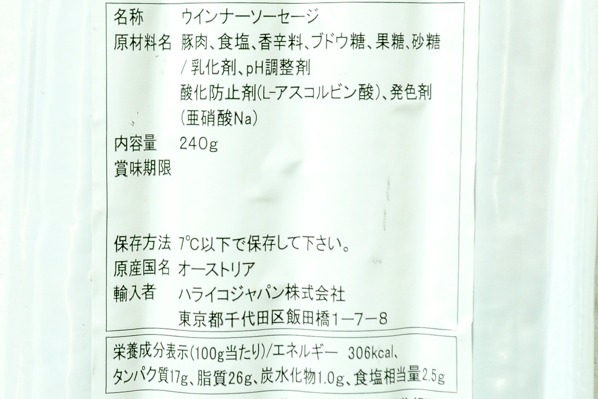 名称 ウインナーソーセージ
原材料名 豚肉、食塩、香辛料、ブドウ糖、果糖、砂糖
/乳化剤、pH調整剤
酸化防止剤(L-アスコルビン酸)、発色剤
(亜硝酸Na)
内容量 240g
賞味期限
保存方法 7℃以下で保存して下さい。
原産国名 オーストリア
輸入者 ハライコジャパン株式会社
東京都千代田区飯田橋1-7-8
栄養成分表示(100g当たり)/エネルギー 306kcal、
タンパク質17g、脂質26g、炭水化物1.0g、食塩相当量2.5g